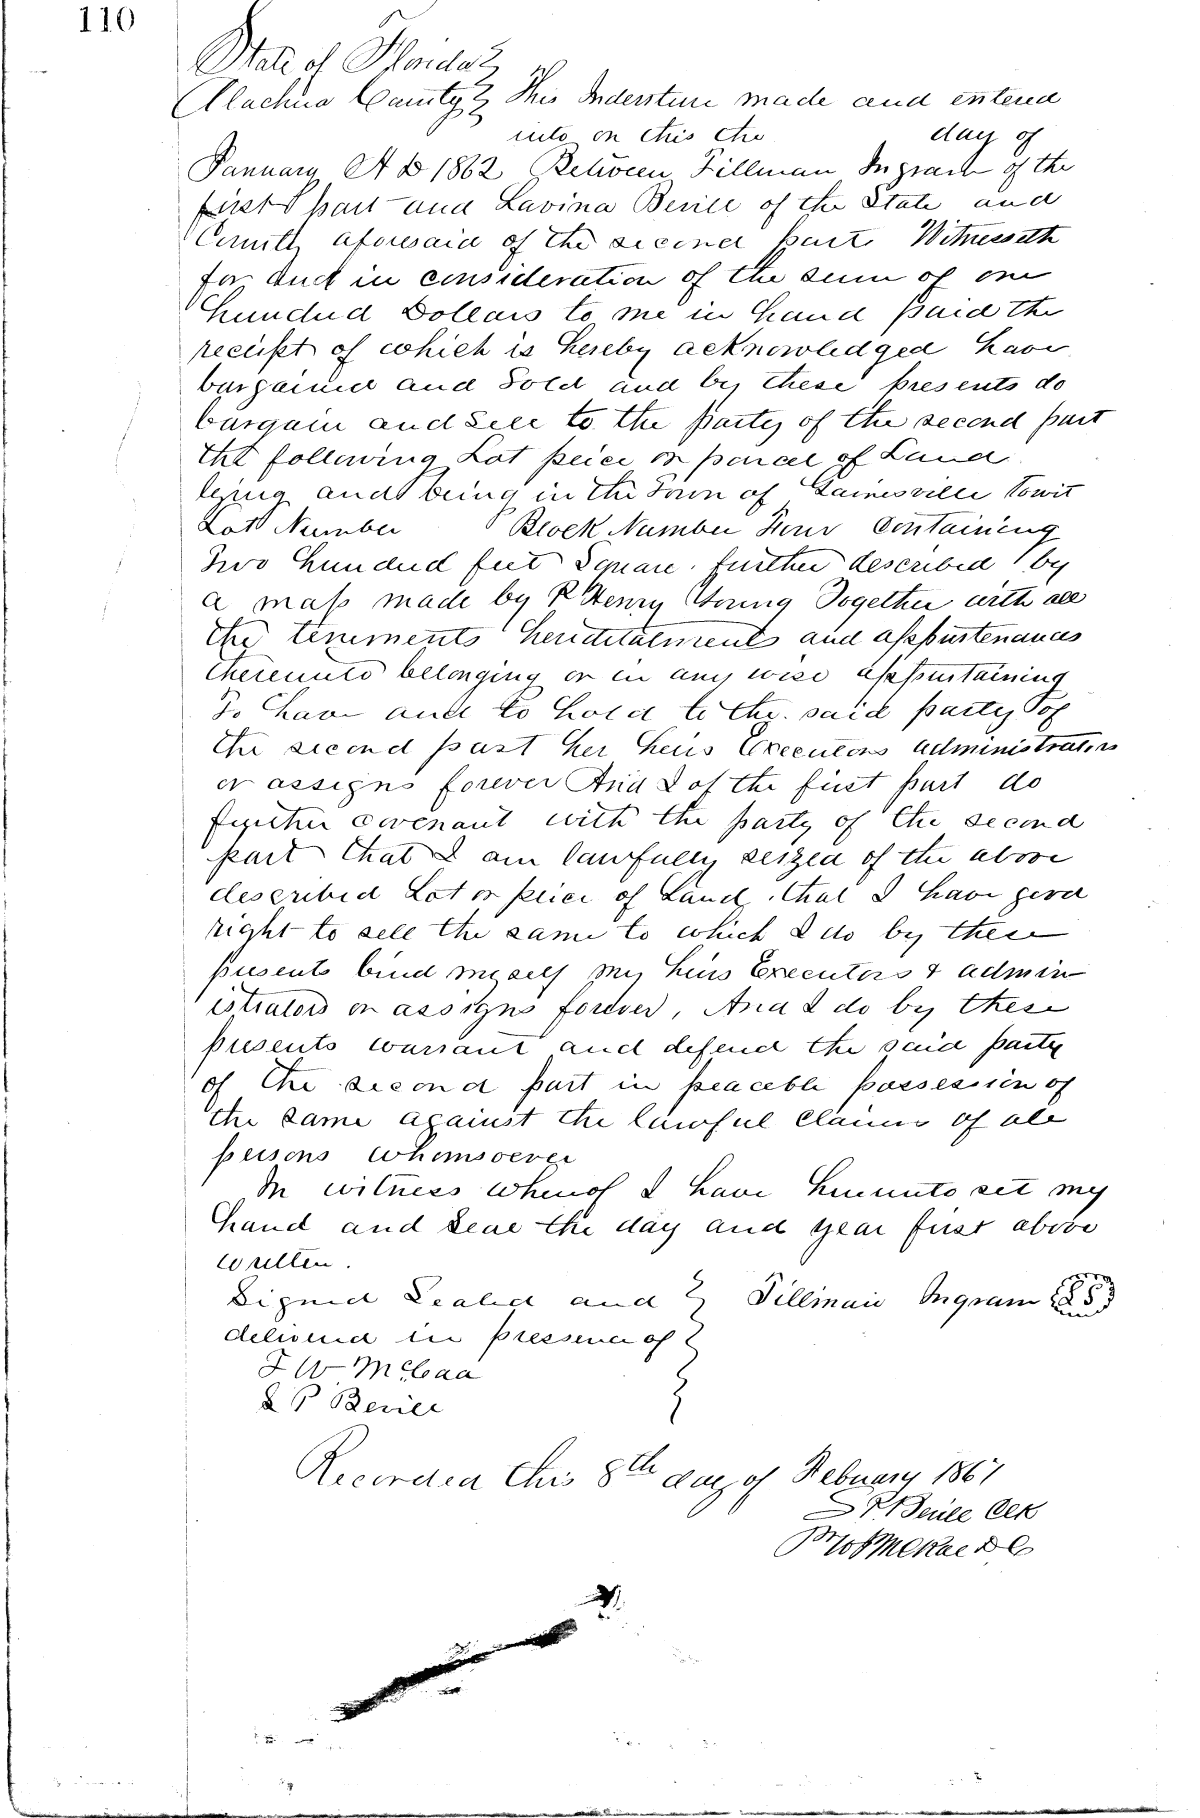 110
State of Florida
Alachua County This Indersture made and entered
into on this the day of
January A D 1862 Between Tillman Ingram of the
first part and Lavina Bevill of the State and
County aforesaid of the second part Witnesseth
for and in consideration of the sum of one
hundred Dollars to me in hand paid the
receipt of which is hereby acknowledged have
bargained and Sold and by these presents do
bargain and Sell to the party of the second part
the following Lot peice or parcel of Land
lying and being in the Town of Gainesville towit
Lot Number Block Number Four Containing
Two hundred feet Square. further described by
a map made by R Henry Young Together with all
the tenements heriditaments and appurtenances
thereunto belonging or in any wise appurtaining
To have and to hold to the said party of
the second part her heirs Executors administrators
or assigns forever And I of the first part do
further covenant with the party of the second
part that I am lawfully seized of the above
described Lot or peice of Land, that I have good
right to sell the same to which I do by these
presents bind myself my heirs Executors & admin
istrators or assigns forever, And I do by these
presents warrant and defend the said party
of the second part in peaceble possession of
the same against the lawful claims of all
persons whomsoever
In witness whereof I have hereunto set my
hand and seal the day and year first above
written.
Signed Sealed and Tillman Ingram LS
delivered in pressence of
J W McCaa
S P Bevill
Recorded this 8th day of Febuary 1867
S P. Bevill Clk
McRae D C